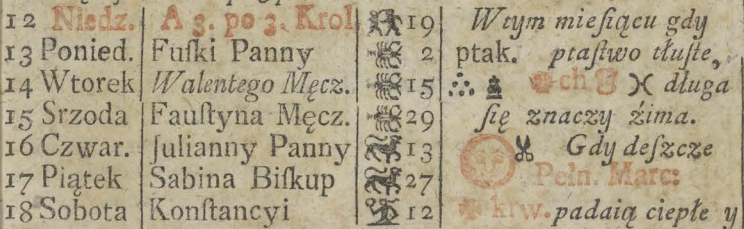 12 Niedz. A 3. po 3. Krol 19 Wtym mieſiącu gdy
13 Ponied. Fuſki Panny 2 ptak. ptaſtwo tłuſte,
14 Wtorek Walentego Męcz. 15 ch długa
15 Srzoda Fauſtyna Męcz. 29 ſię znaczy źima.
16 Czwar. Julianny Panny 13 Gdy deſzcze
17 Piątek Sabina Biſkup 27 Pełn. Marc:
18 Sobota Konſtancyi 12 krw. padaią ciepłe y